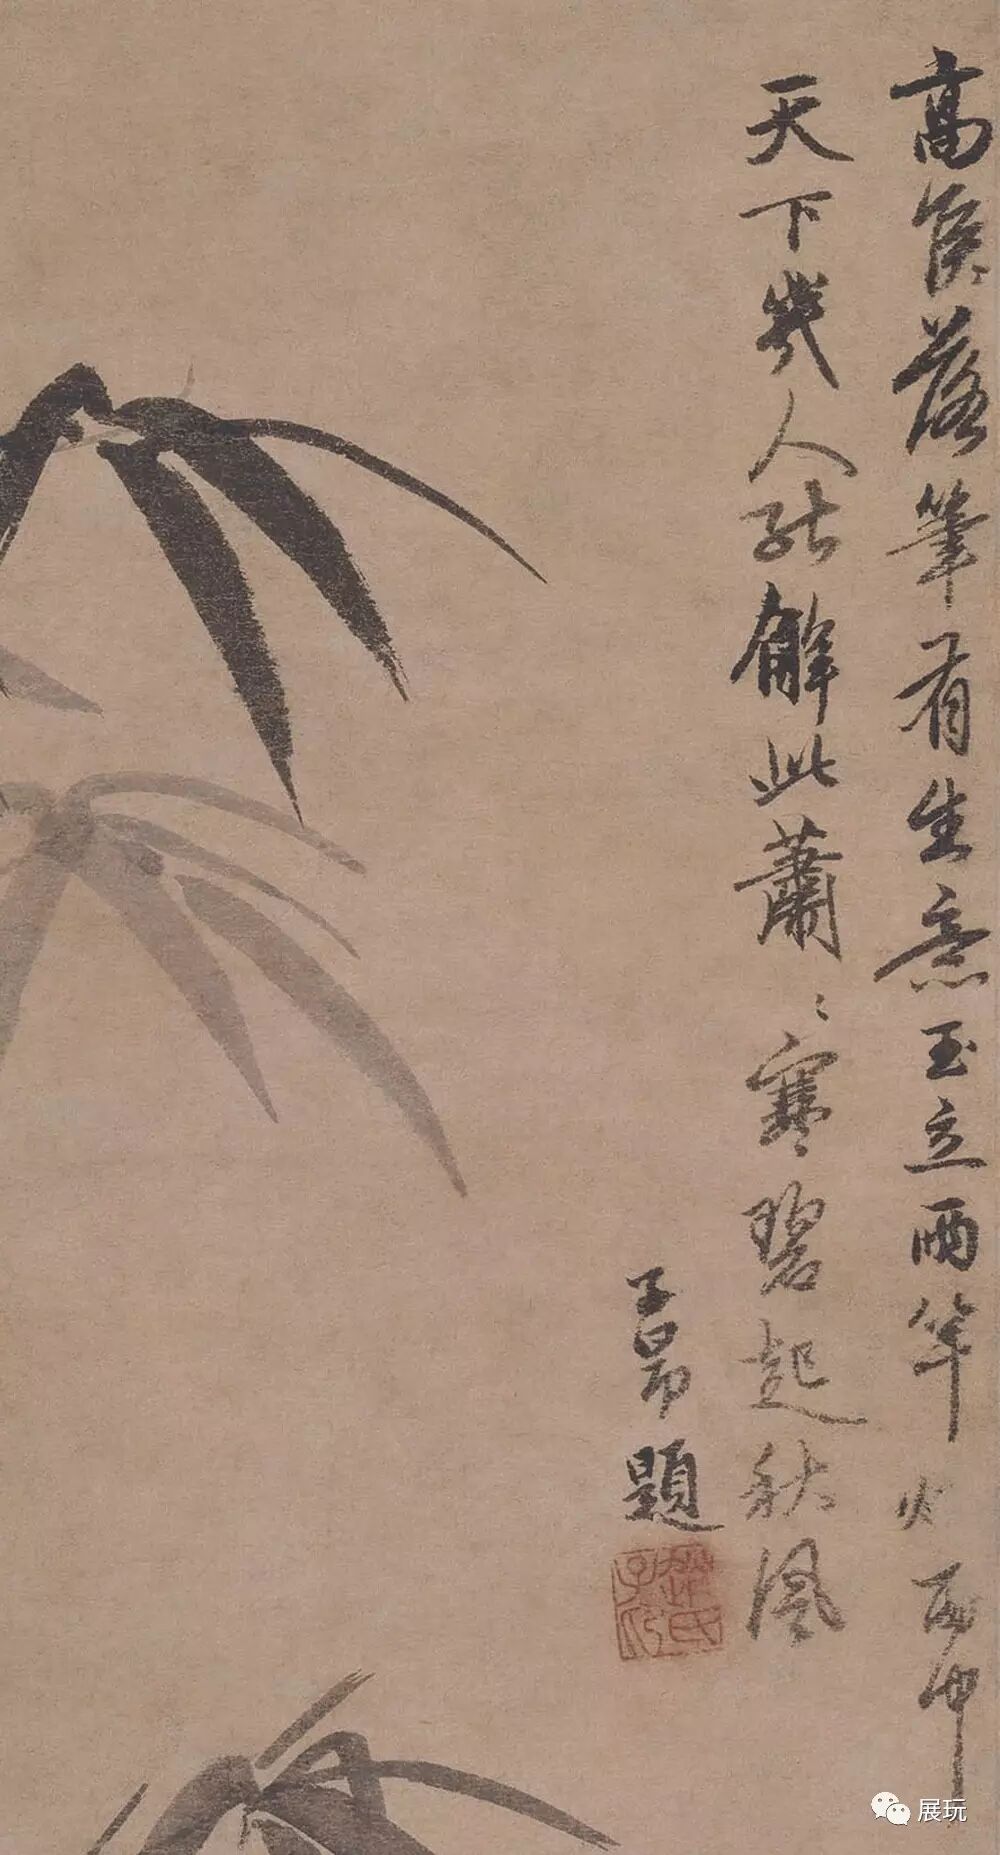 高侯落筆有生意玉立兩竿煙雨中
天下幾人能解此蕭〻寒碧起秋風
子昂題
趙氏子昂
展玩